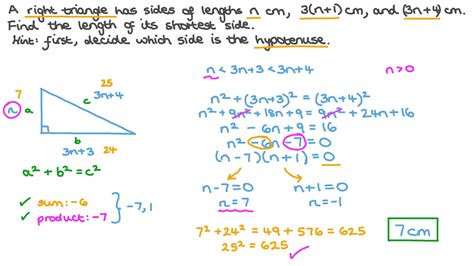 A right triangle has sides of lengths n cm, 3(n+1) cm, and (3n+4) cm.
Find the length of its shortest side.
Hint: first, decide which side is the hypotenuse.
n < 3n+3 < 3n+4
n>0
25
7
c
3n+4
n
a
b
3n+3 24
a² + b² = c²
✓ sum: -6
✓ product: -7
} -7, 1
n² + (3n+3)² = (3n+4)²
n² + 9n² + 18n + 9 = 9n² + 24n + 16
n² - 6n + 9 = 16
n² - 6n - 7 = 0
(n-7)(n+1) = 0
n-7=0 n+1=0
n=7 n=-1
7² + 24² = 49 + 576 = 625
25² = 625 ✓
7cm